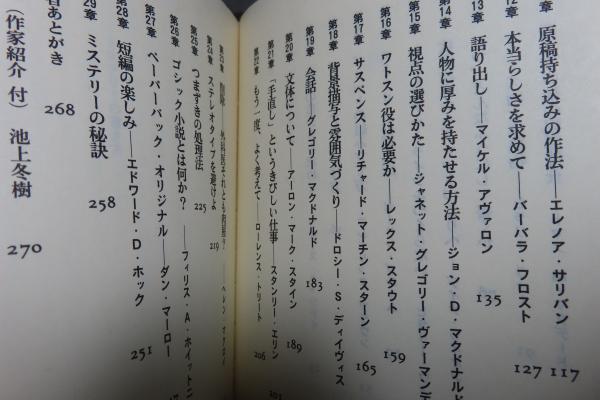 原稿持ち込みの作法――エレノア・サリバン 117
12章 本当らしさを求めて――バーバラ・フロスト 127
13章 語り出し――マイケル・アヴァロン 135
第14章 人物に厚みを持たせる方法――ジョン・D・マクドナルド
第15章 視点の選びかた――ジャネット・グレゴリー・ヴァーマンデ
第16章 ワトスン役は必要か――レックス・スタウト 159
第17章 サスペンス――リチャード・マーチン・スターン 165
第18章 背景描写と雰囲気づくり――ドロシー・S・デイヴィス
第19章 会話――グレゴリー・マクドナルド 183
第20章 文体について――アーロン・マーク・スタイン 189
第21章 「手直し」というきびしい仕事――スタンリー・エリン
第22章 もう一度、よく考えて――ローレンス・トリート 206
第23章
第24章 ステレオタイプを避けよ 219
第25章 つまずきの処理法 225
第26章 ゴシック小説とは何か?――フィリス・A・ホイットニ
第27章 ペーパーバック・オリジナル――ダン・マーロー 251
第28章 短編の楽しみ――エドワード・D・ホック 258
29章 ミステリーの秘訣
者あとがき 268
(作家紹介 付) 池上冬樹 270